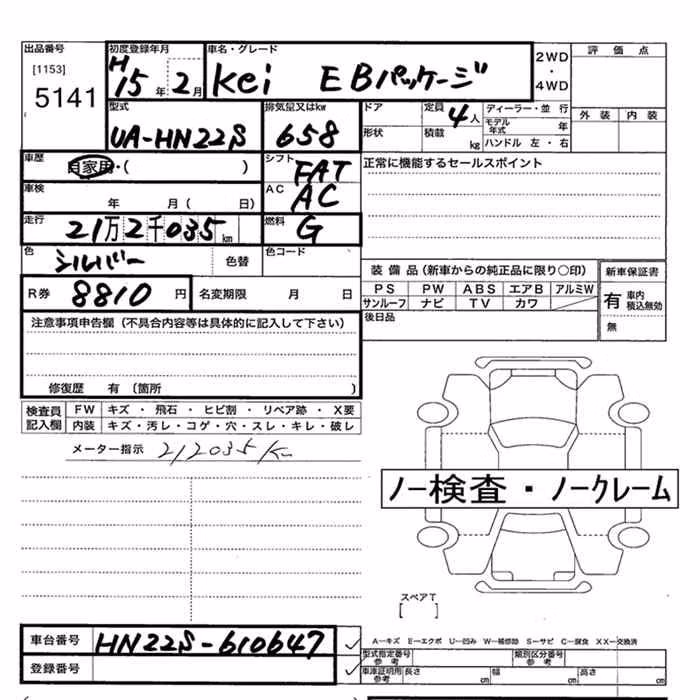 出品番号 初度登録年月 車名・グレード 2WD・4WD 評価点
[1153] 5141 H15年2月 Kei EBパッケージ
型式 排気量又はkw ドア 定員 4人 ディーラー・並行 外装 内装
UA-HN22S 658 形状 積載 kg モデル年式 年
ハンドル 左・右
車歴 自家用・( ) シフト FAT 正常に機能するセールスポイント
車検 年 月( 日) AC AC
走行 21万2千035km 燃料 G
色 シルバー 色替 色コード
装備品(新車からの純正品に限り○印) 新車保証書
R券 8810円 名変期限 月 日 PS PW ABS エアB アルミW 有 車内積込無効
サンルーフ ナビ TV カワ 無
注意事項申告欄(不具合内容等は具体的に記入して下さい) 後日品
修復歴 有(箇所 )
検査員記入欄 FW キズ・飛石・ヒビ割・リペア跡・X要
内装 キズ・汚レ・コゲ・穴・スレ・キレ・破レ
メーター指示 212035K
ノー検査・ノークレーム
スペアT
[ ]
車台番号 HN22S-610647
A-キズ E-エクボ U-凹み W-補修跡 S-サビ C-腐食 XX-交換済
登録番号 型式指定番号 参考 類別区分番号 参考
車庫証明用 参考 長さ cm 幅 cm 高さ cm